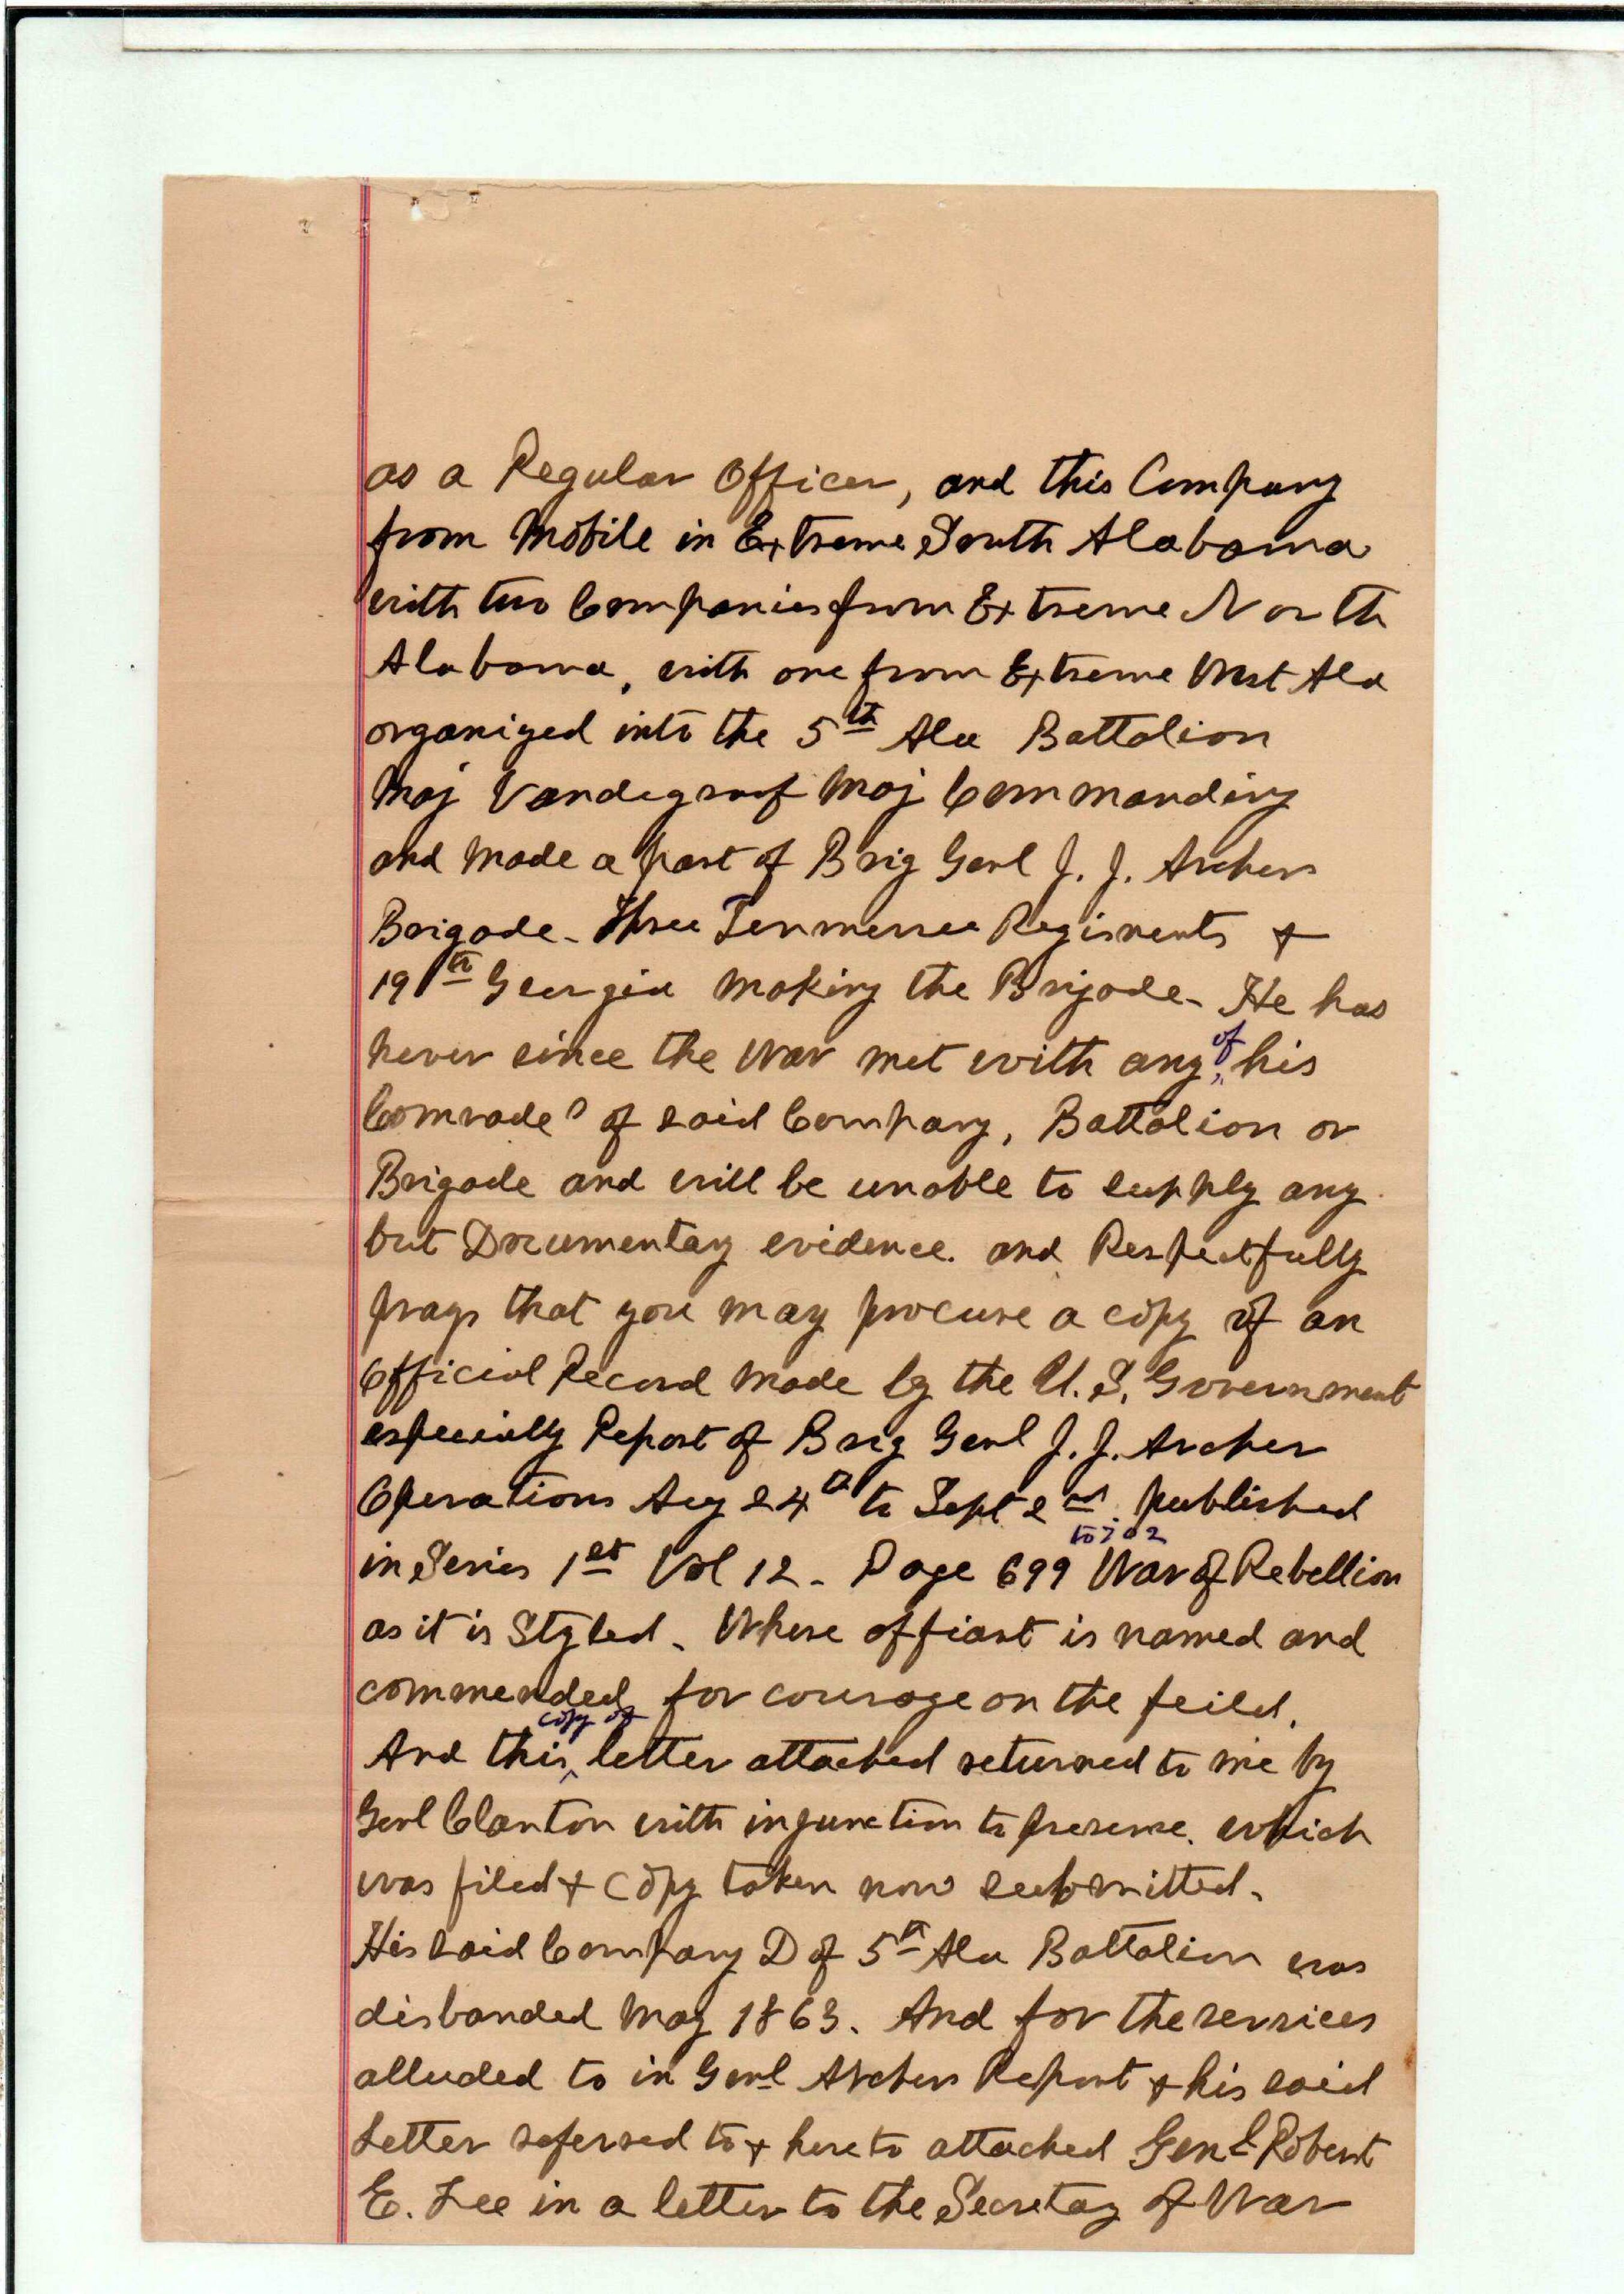 as a Regular Officer, and this Company
from Mobile in Extreme South Alabama
with two Companies from Extreme North
Alabama, with one from Extreme West Ala
organized into the 5th Ala Battalion
Maj Vandegraf Maj Commanding
and made a part of Brig Genl J. J. Archers
Brigade - Three Tennessee Regiments &
19th Georgia making the Brigade - He has
never since the War met with any of his
Comrades of said Company, Battalion or
Brigade and will be unable to supply any
but Documentay evidence. and Respectfully
prays that you may procure a copy of an
Official Record made by the U. S. Government
especially Report of Brig Genl J. J. Archer
Operations Aug 24th to Sept 2nd. published
in Series 1st Vol 12 - Page 699 to 702 War of Rebellion
as it is Styled - Where affiant is named and
commended for courage on the feild.
And this copy of letter attached returned to me by
Genl Clanton with injunction to preserve. which
was filed & copy taken now submitted -
His said Company D of 5th Ala Battalion was
disbanded May 1863. And for the services
alluded to in Genl Archers Report & his said
Letter referred to & hereto attached Genl Robert
E. Lee in a letter to the Secretay of War